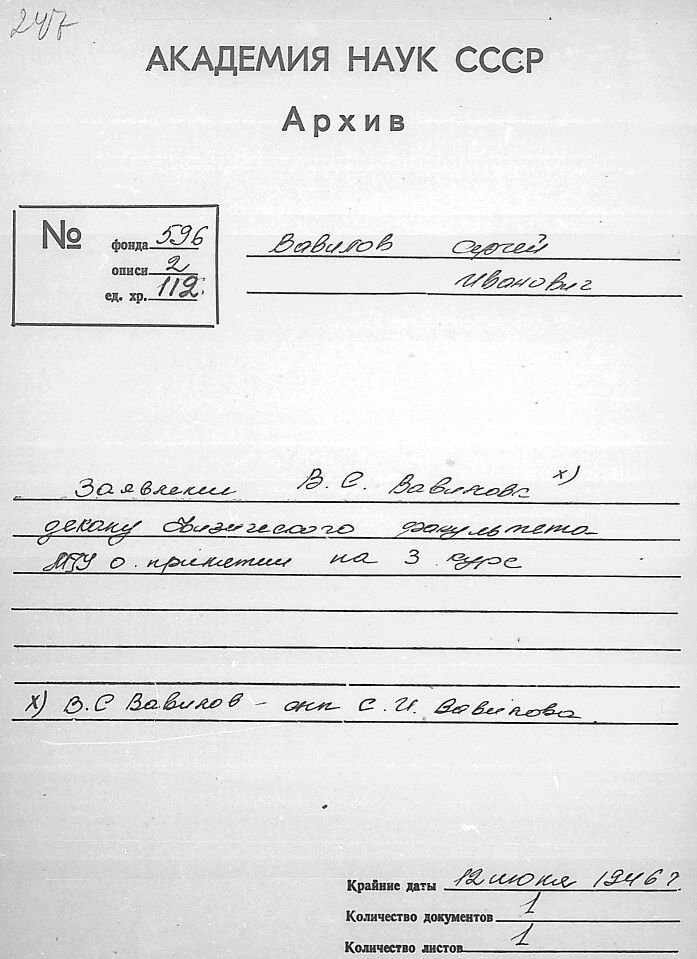 247
АКАДЕМИЯ НАУК СССР
Архив
№
фонда 596
описи 2
ед. хр. 112.
Вавилов Сергей
Иванович
Заявление В. С. Вавилова х)
декану физического факультета
МГУ о принятии на 3 курс
х) В. С Вавилов - сын С. И. Вавилова.
Крайние даты 12 июня 1946 г.
Количество документов 1
Количество листов 1